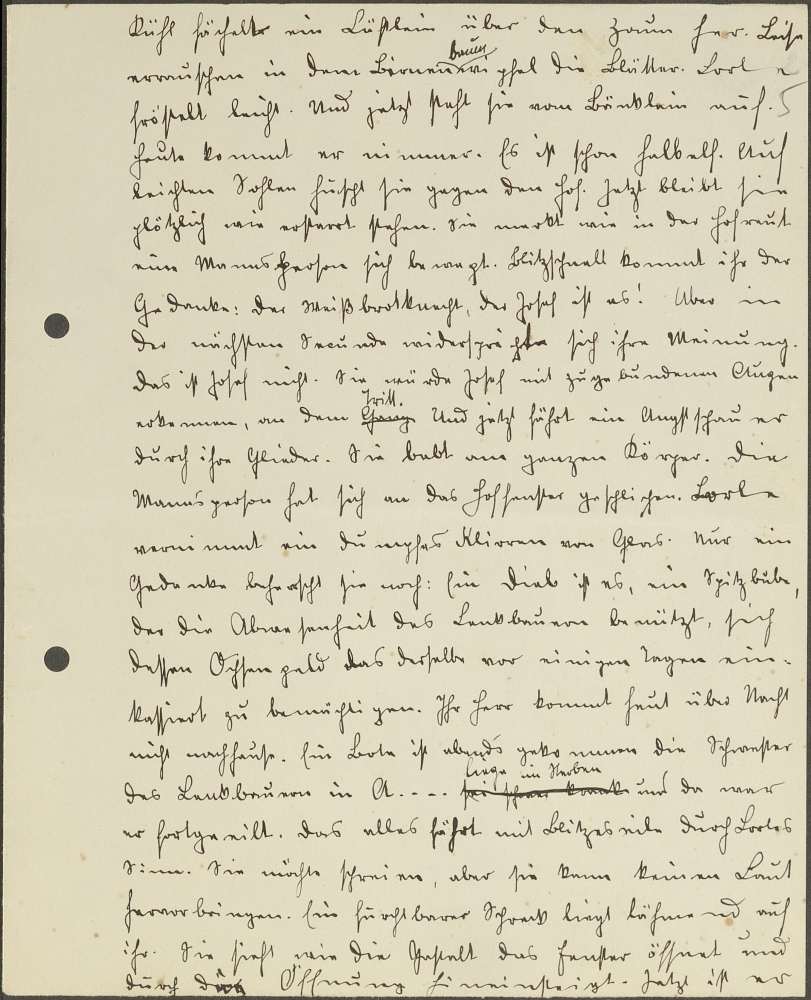 Kühl fächelte ein Lüftlein über den Zaun her. Leise
erraufchen in dem Birnenbaum die Blätter. Lorle
fröstelt leicht. Und jetzt steht sie vom Bänklein auf. 5
Heute kommt er nimmer. Es ist schon halbelf. Auf
leichten Sohlen huscht sie gegen den Hof. Jetzt bleibt sie
plötzlich wie erstarrt stehen. Sie merkt wie in der Hofreut
eine Mannsperson sich bewegt. Blitzschnell kommt ihr der
Gedanke: Der Weißbrotknecht, der Josef ist es! Aber in
der nächsten Secunde widerspricht sich ihre Meinung.
Das ist Josef nicht. Sie würde Josef mit zugebundenen Augen
erkennen, an dem Tritt. Und jetzt fährt ein Angstschauer
durch ihre Glieder. Sie bebt am ganzen Körper. Die
Mannsperson hat sich an das Hoffenster geschlichen. Lorle
vernimmt ein dumpfes Klirren von Glas. Nur ein
Gedanke beherrscht sie noch: Ein Dieb ist es, ein Spitzbube,
der die Abwesenheit des Lenkbauern benützt, sich
dessen Ochsengeld das derselbe vor einigen Tagen ein-
kassiert zu bemächtigen. Ihr Herr kommt heut über Nacht
nicht nachhause. Ein Bote ist abends gekommen die Schwester
des Lenkbauern in A.... liege im Sterben und da war
er fortgeeilt. Das alles fährt mit Blitzeseile durch Lorles
Sinn. Sie möchte schreien, aber sie kann keinen Laut
hervorbringen. Ein furchtbarer Schreck liegt lähmend auf
ihr. Sie sieht wie die Gestalt das Fenster öffnet und
durch die Öffnung hineinsteigt. Jetzt ist er